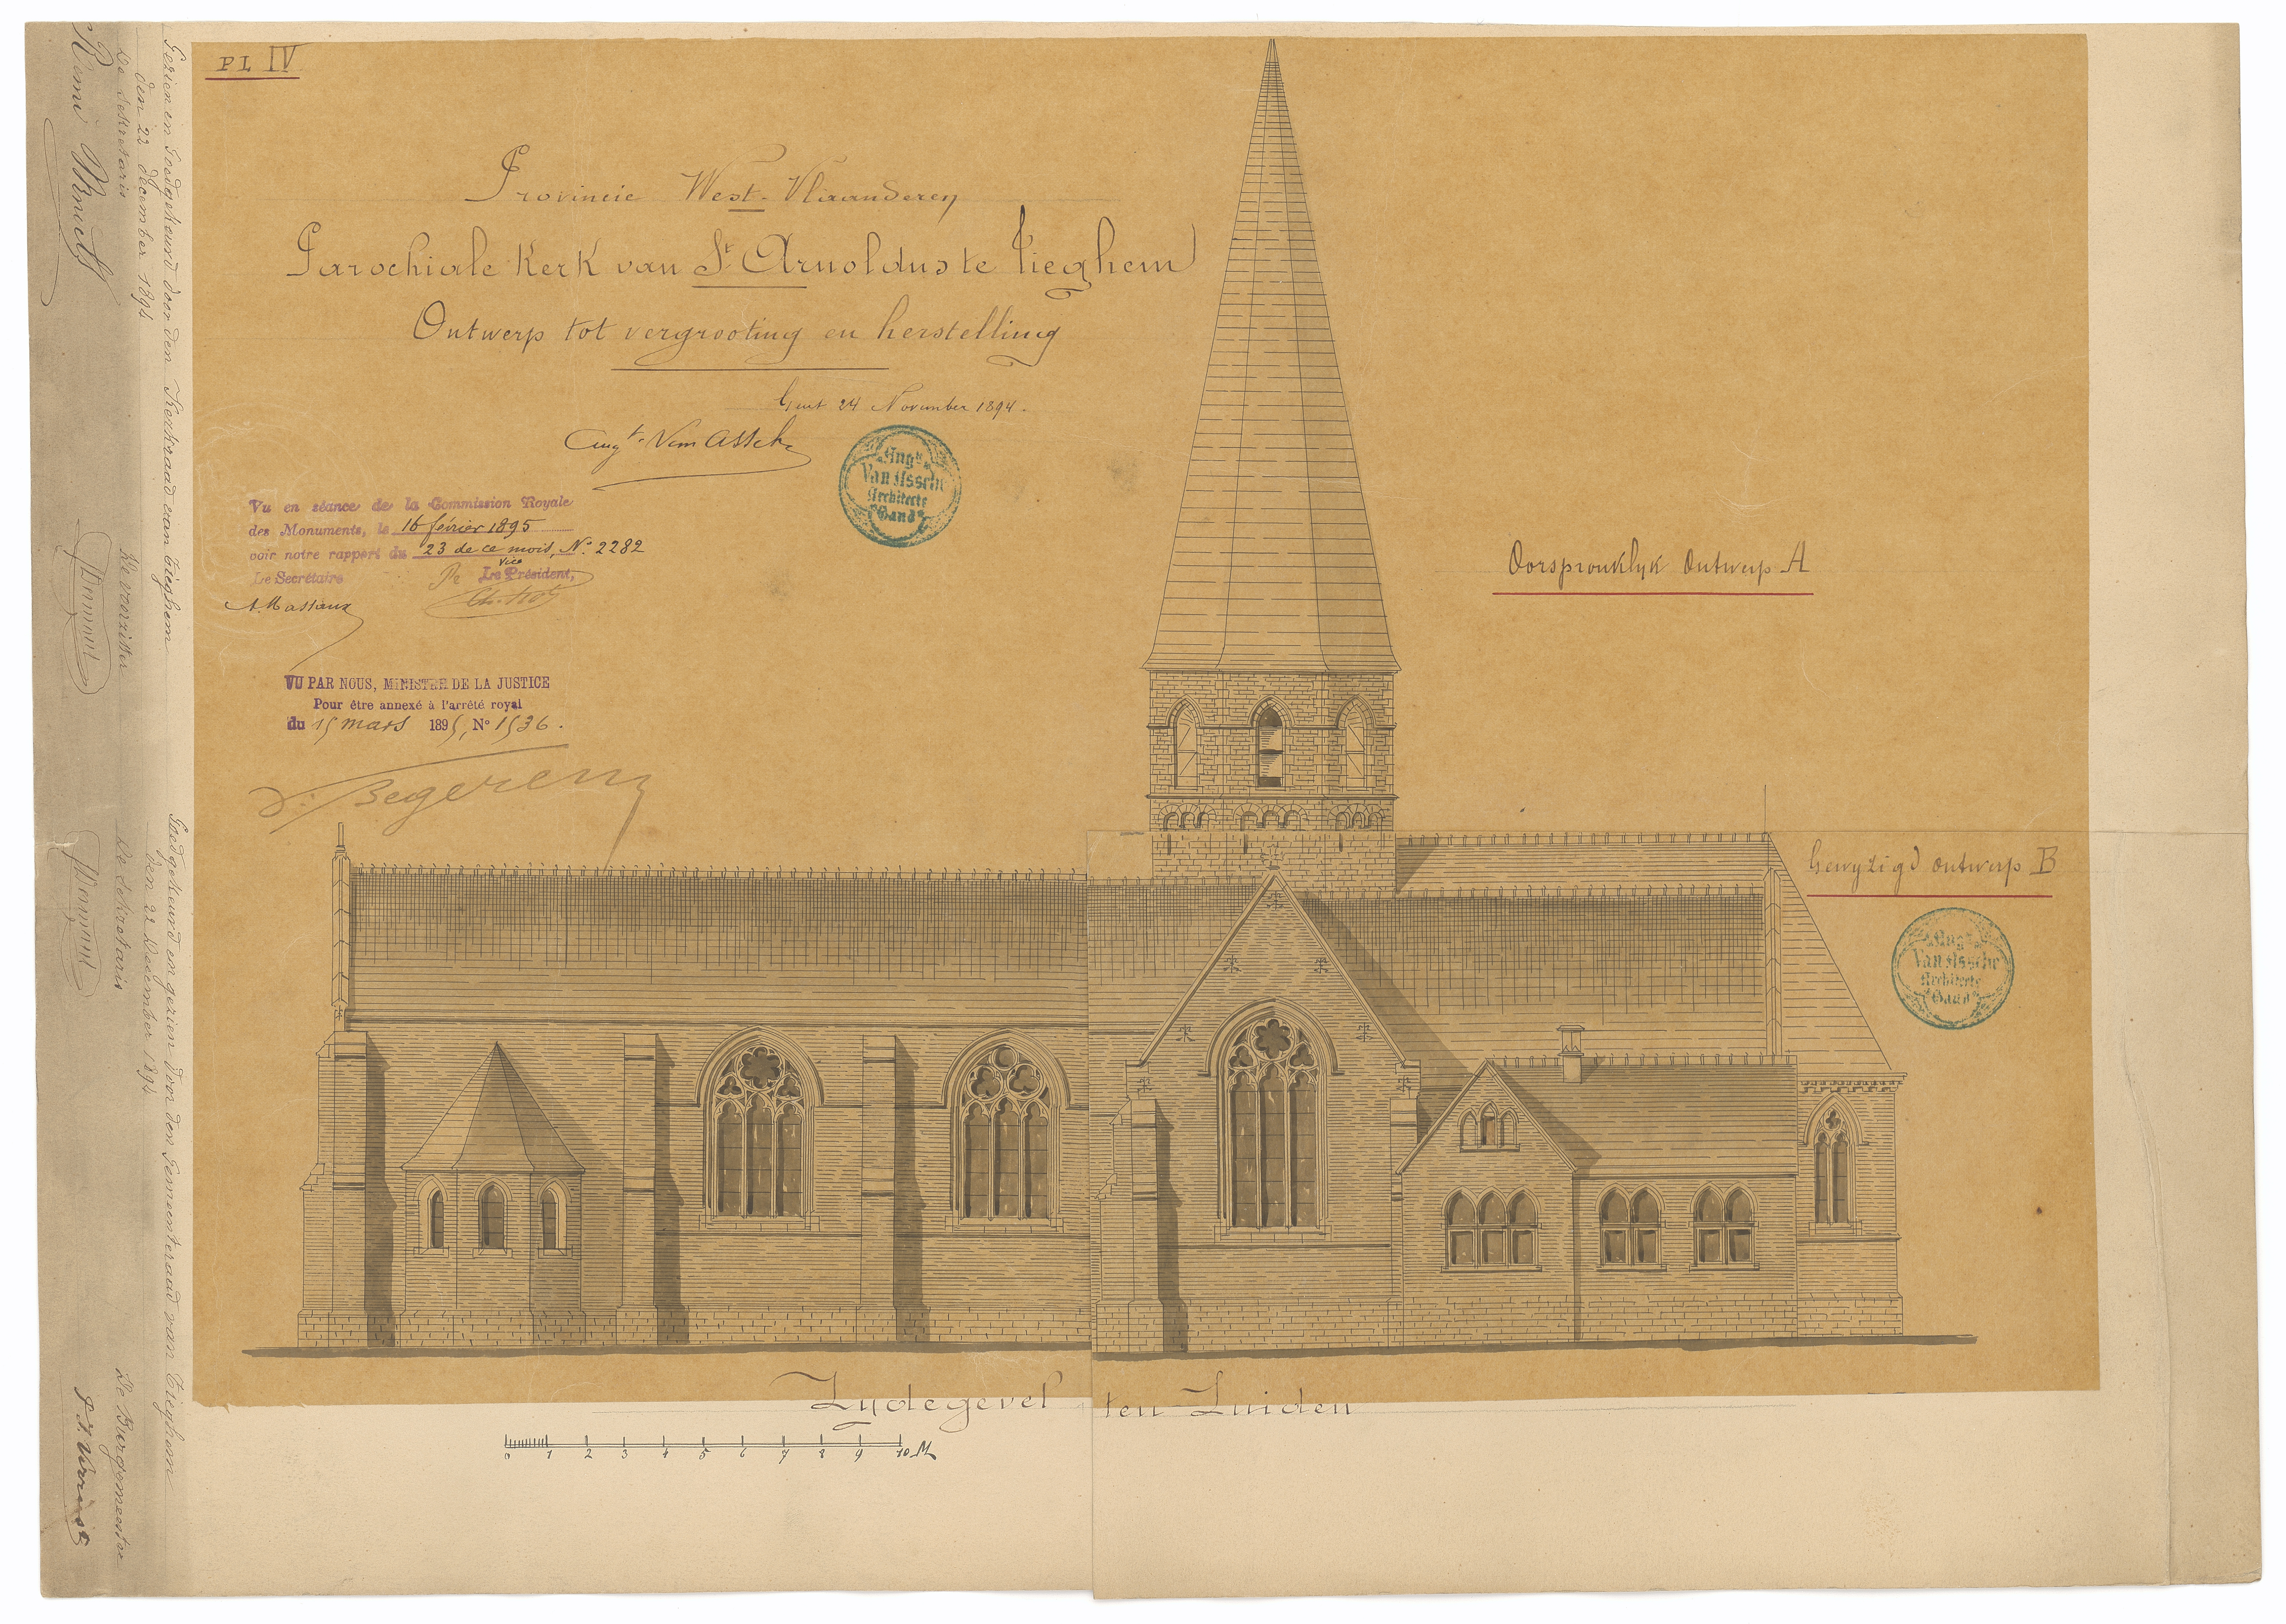 PL IV
Provincie West-Vlaanderen
Parochiale Kerk van St Arnoldus te Tieghem
Ontwerp tot vergrooting en herstelling
Gent 24 November 1894.
Augt. Van Assche
Augte
Van Assche
Architecte
Gand
Vu en séance de la Commission Royale
des Monuments, le 16 février 1895
voir notre rapport du 23 de ce mois, N° 2282
Le Secrétaire
Pr Le Vice Président,
A. Massaux
VU PAR NOUS, MINISTRE DE LA JUSTICE
Pour être annexé à l'arrêté royal
du 15 mars 1895, N° 1536.
V. Begerem
Oorspronklyk Ontwerp A
Gewyzigd ontwerp B
Augte
Van Assche
Architecte
Gand
Zydegevel ten Zuiden
0 1 2 3 4 5 6 7 8 9 10 M
Gezien en Goedgekeurd door den Kerkraad van Tieghem
den 22 december 1894
De Sekretaris
De voorzitter
Goedgekeurd en gezien door den Gemeenteraad van Tieghem
den 22 December 1894
De Sekretaris
De Burgemeester